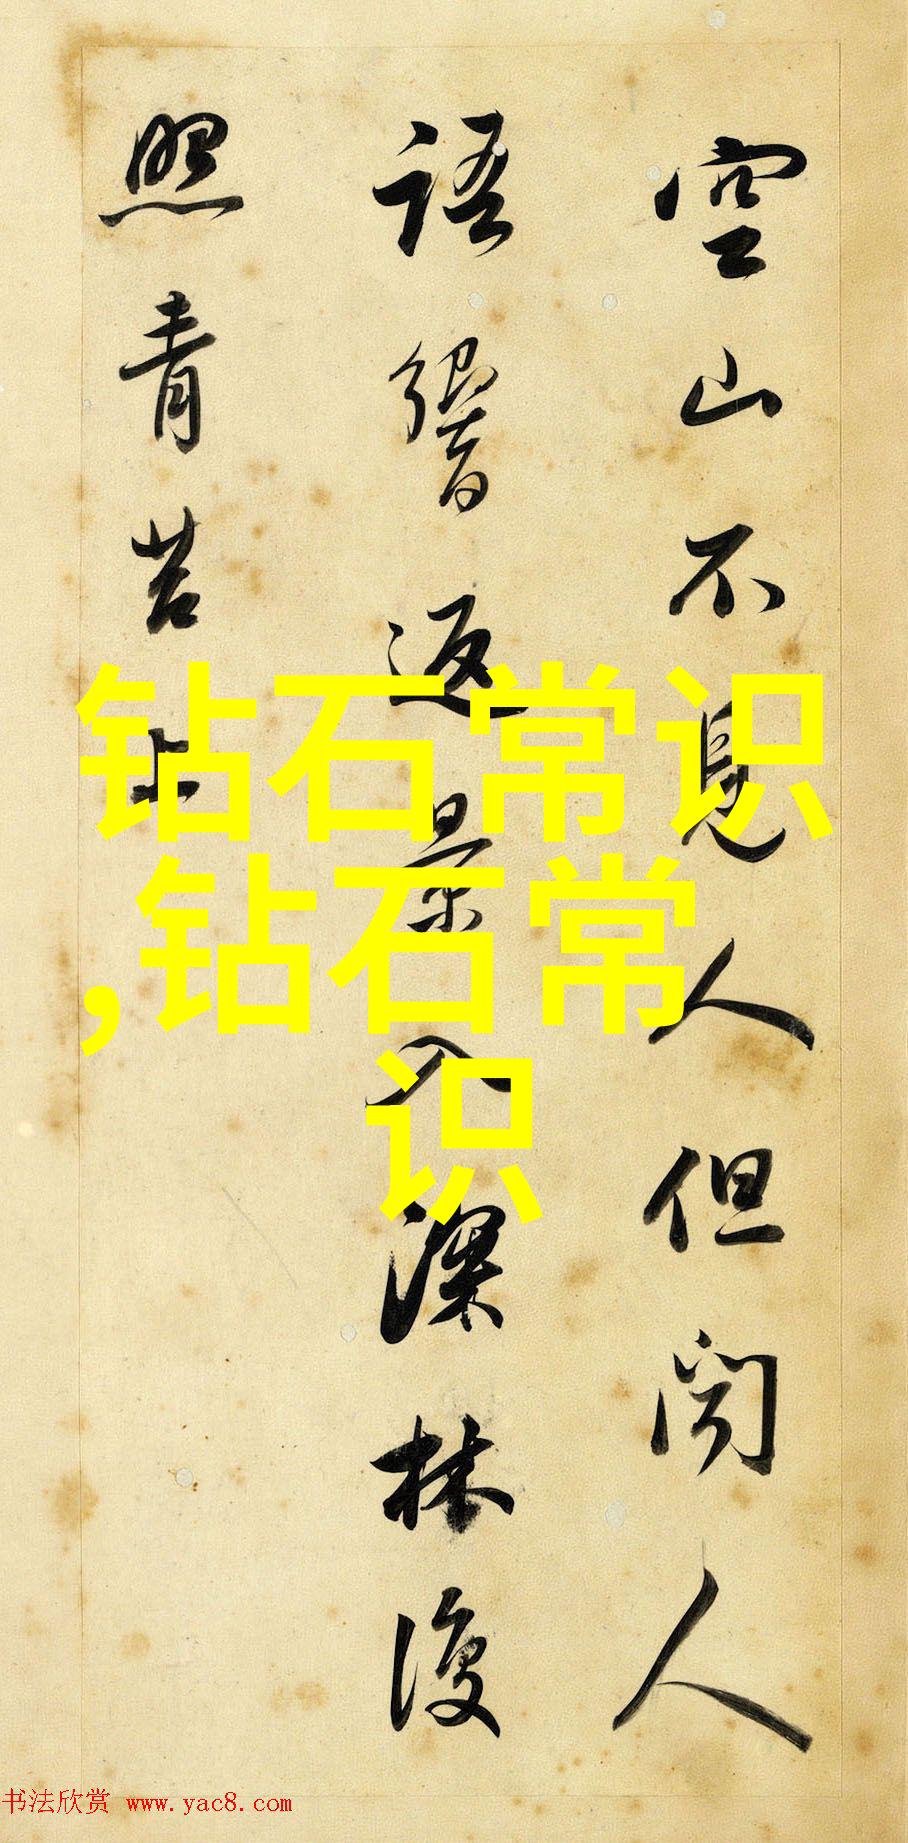 空山不見人但聞人
語響返景入深林復
照青苔上
钻石常识
,钻石常
识
书法欣赏 www.yac8.com